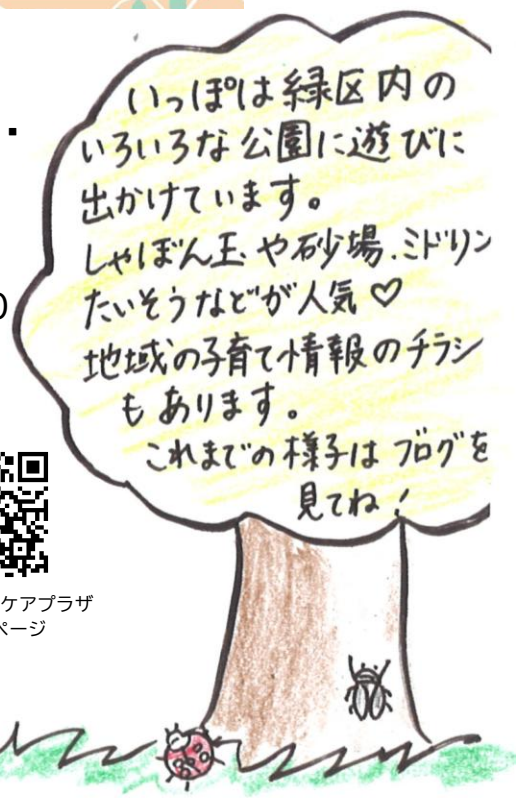 いっぽは緑区内の
いろいろな公園に遊びに
出かけています。
しゃぼん玉や砂場、ミドリン
たいそうなどが人気♡
地域の子育て情報のチラシ
もあります。
これまでの様子はブログを
見てね!
ケアプラザ
ページ